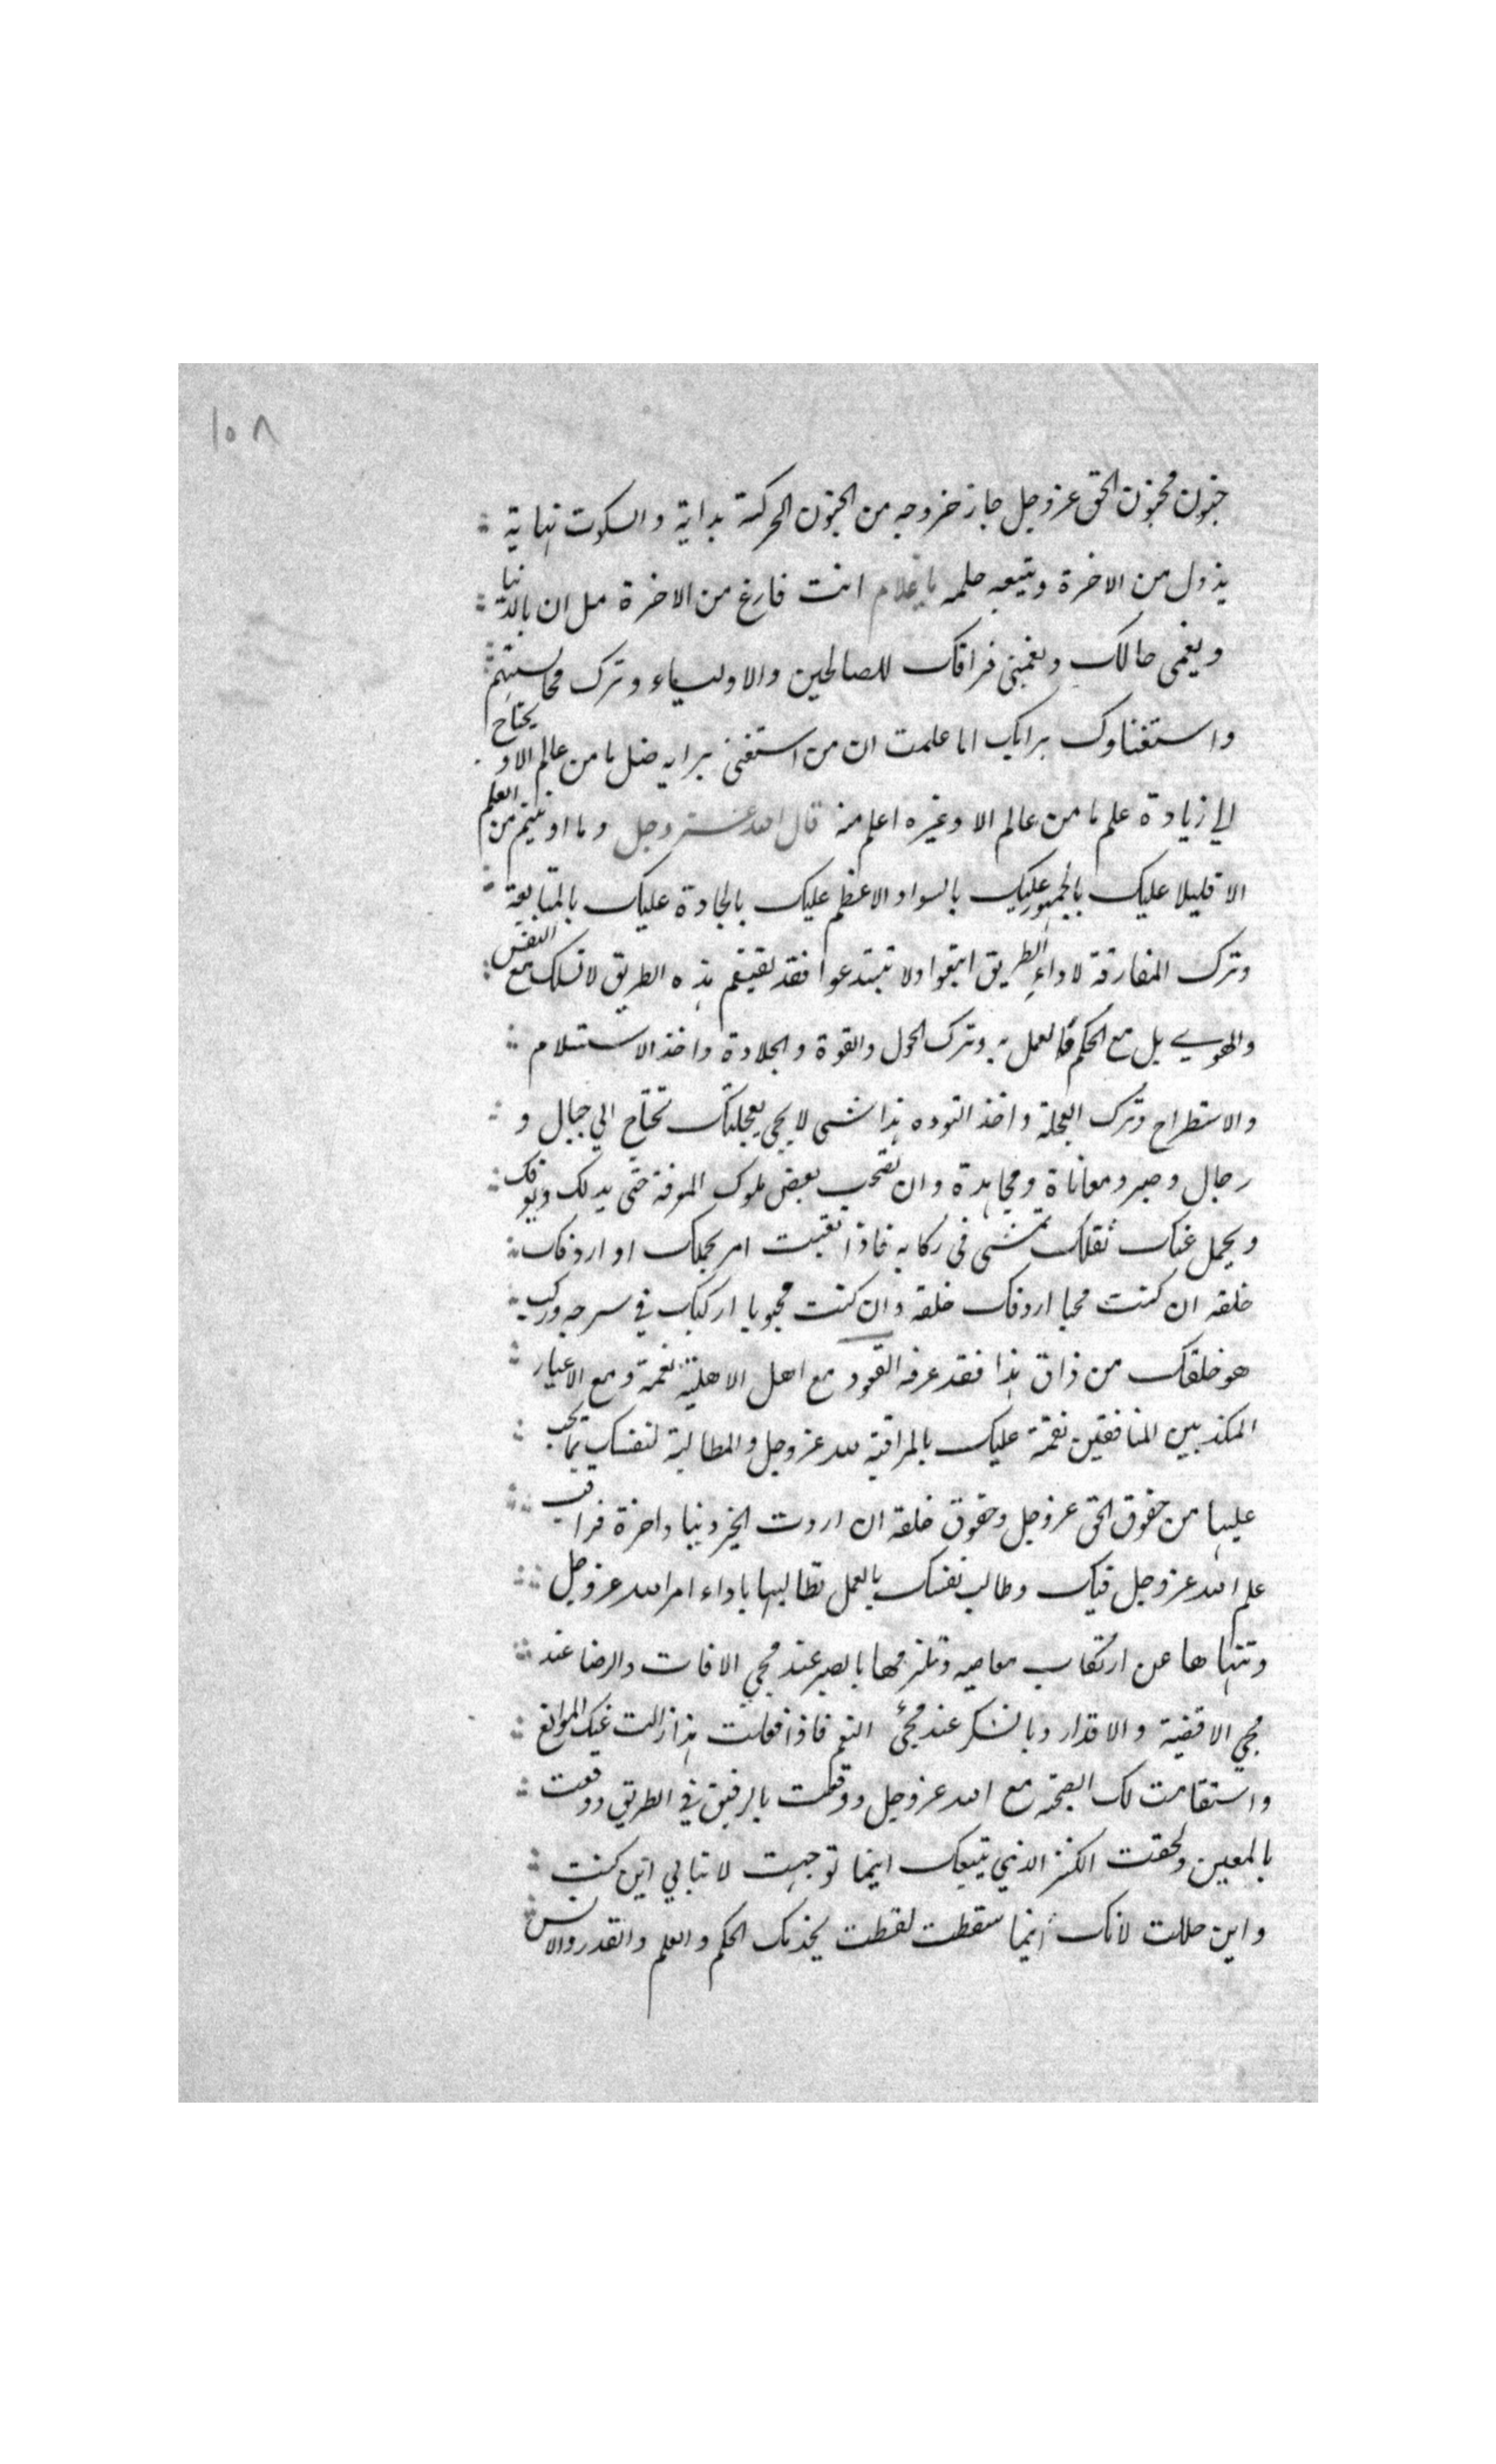 ١٥٨
جنون مجنون الحق عز وجل جاز خروجه من الجنون الحركة بداية والسكوت نهاية
يذول من الاخرة ويتبعه حلمه يا غلام انت فارغ من الاخرة ملان بالدنيا
ويغمى حالك ويغمنى فراقك للصالحين والاولياء وترك مجالستهم
واستغناوك برايك اما علمت ان من استغنى برايه ضل ما من عالم الا و يحتاج
الي زيادة علم ما من عالم الا وغيره اعلم منه قال الله عز وجل وما اوتيتم من العلم
الا قليلا عليك بالجمهور عليك بالسواد الاعظم عليك بالجادة عليك بالمتابعة
وترك المفارقة لاداء الطريق اتبعوا ولا تبتدعوا فقد لقيتم هذه الطريق لا تسلك مع النفس
والهوي بل مع الحكم والعمل به وترك الحول والقوة والجلادة واخذ الاستسلام
والاستطراح وترك العجلة واخذ التوده هذا شى لا يجى بعجلتك تحتاج الي حبال و
رجال وصبر ومعاناة ومجاهدة وان تصحب بعض ملوك المعرفة حتى يدلك ويعرفك
ويحمل عنك ثقلك تمشى فى ركابه فاذا تعبت امر بحملك او اردفك
خلفه ان كنت محبا اردفك خلفه وان كنت محبوبا اركبك في سرجه وركب
هو خلفك من ذاق هذا فقد عرفه القعود مع اهل الاهلية نعمة ومع الاغيار
المكذبين المنافقين نقمة عليك بالمراقبة لله عز وجل والمطالبة لنفسك بما يجب
عليها من حقوق الحق عز وجل وحقوق خلقه ان اردت الخير دنيا واخرة فراقب
علم الله عز وجل فيك وطالب نفسك بالعمل تطالبها باداء امر الله عز وجل
وتنهاها عن ارتكاب معاصيه وتلزمها بالصبر عند مجي الافات والرضا عند
مجي الاقضية والاقدار وبالشكر عند مجئ النعم فاذا فعلت هذا زالت عنك الموانع
واستقامت لك الصحبة مع الله عز وجل ووقعت بالرفيق في الطريق ووقعت
بالمعين ولحقت الكنز الذي يتبعك اينما توجهت لا تبالي اين كنت
واين حللت لانك اينما سقطت لقطت يخدمك الحكم والعلم والقدر والانس